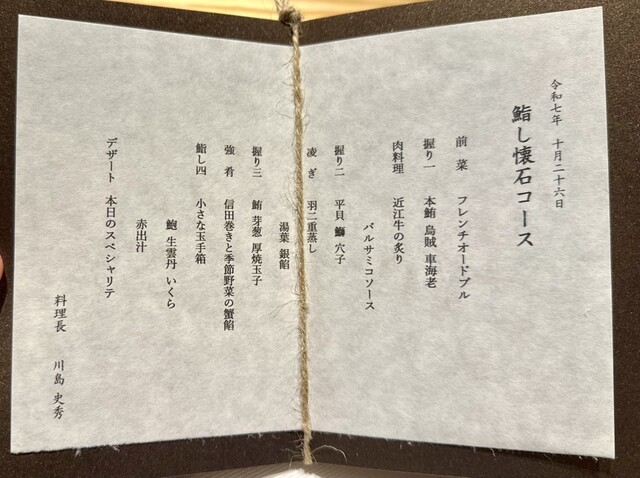 令和七年 十月二十六日
鮨し懐石コース
前菜 フレンチオードブル
握り一 本鮪 烏賊 車海老
肉料理 近江牛の炙り
バルサミコソース
握り二 平貝 鰤 穴子
凌ぎ 羽二重蒸し
湯葉 銀餡
握り三 鮪 芽葱 厚焼玉子
強肴 信田巻きと季節野菜の蟹餡
鮨し四 小さな玉手箱
鮑 生雲丹 いくら
赤出汁
デザート 本日のスペシャリテ
料理長 川島 史秀